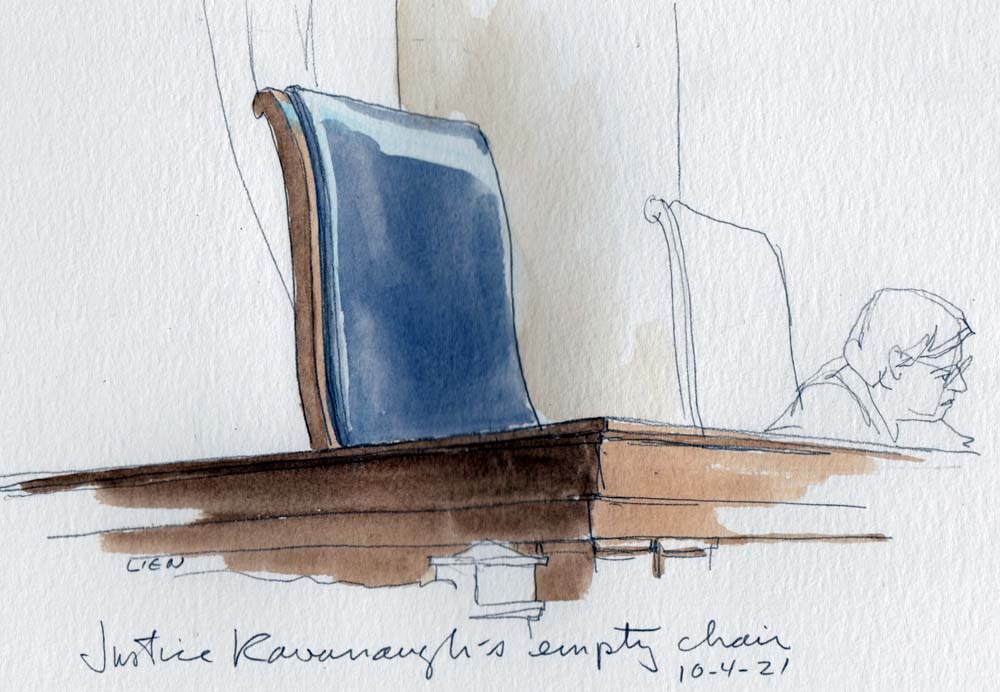 LIEN
Justice Kavanaugh's empty chair
10-4-21